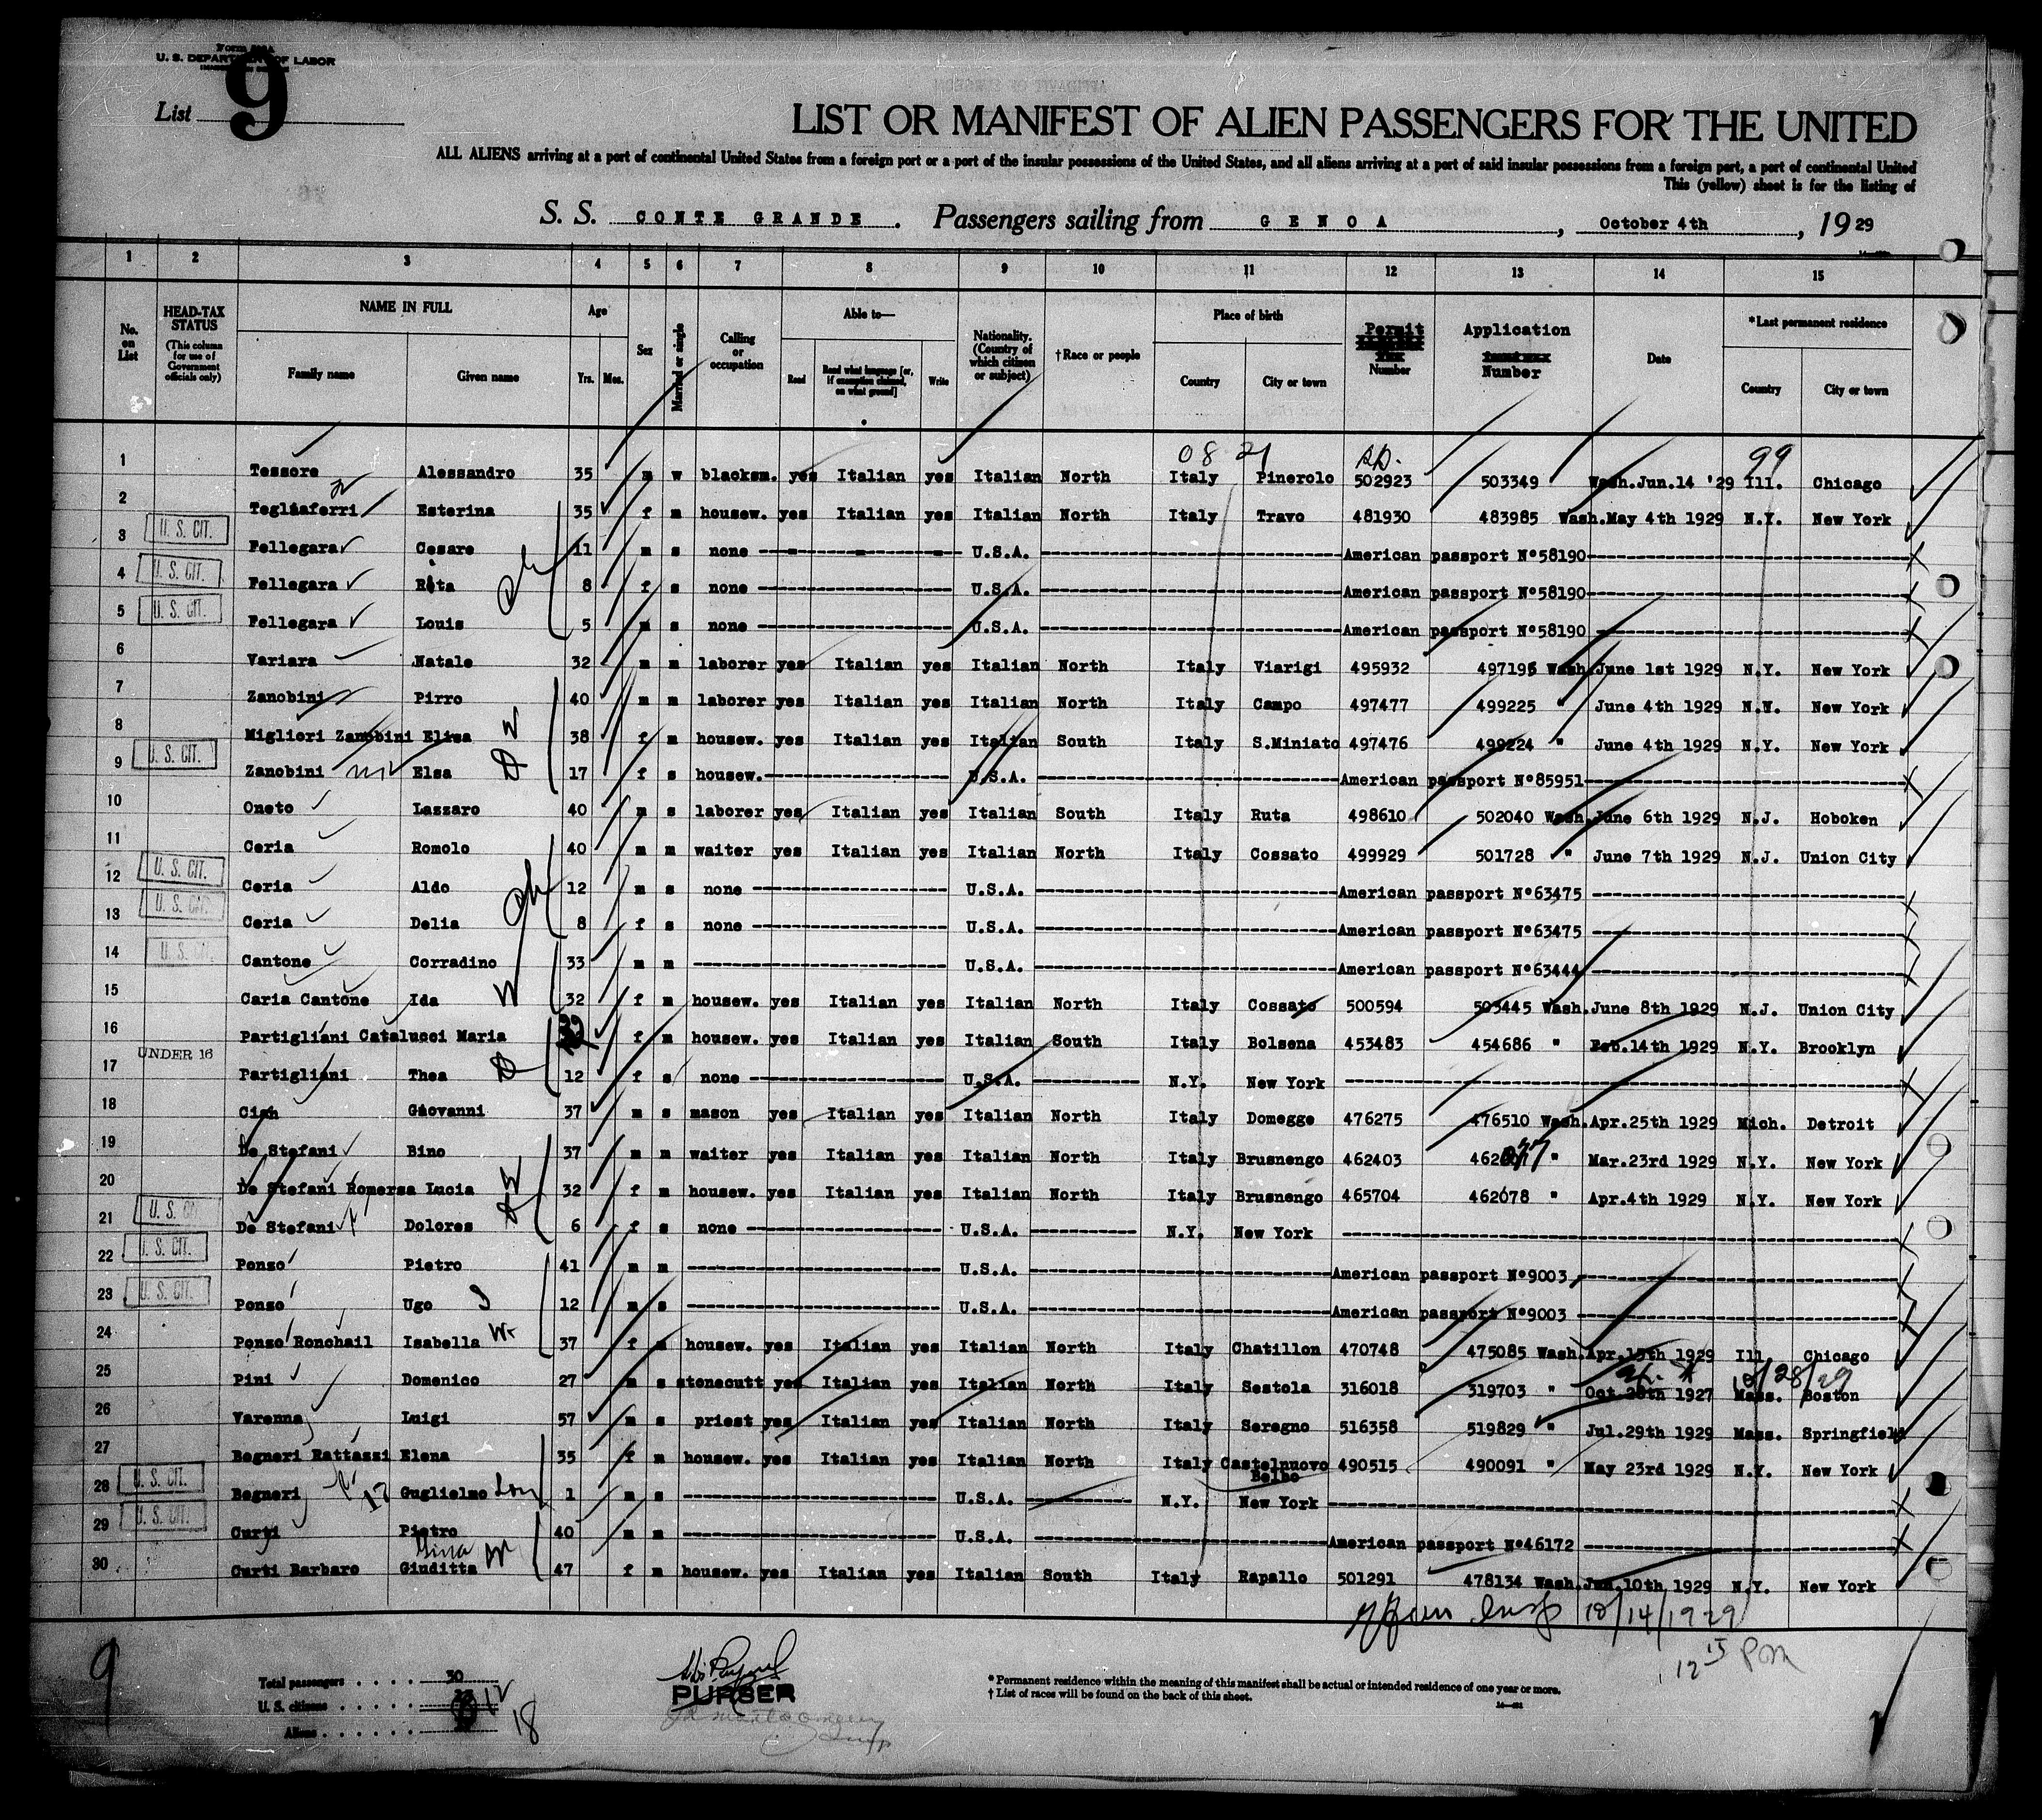 Form
U. S. DEPARTMENT OF LABOR
List 9
LIST OR MANIFEST OF ALIEN PASSENGERS FOR THE UNITED
ALL ALIENS arriving at a port of continental United States from a foreign port or a port of the insular possessions of the United States, and all aliens arriving at a port of said insular possessions from a foreign port, a port of continental United
This (yellow) sheet is for the listing of
S. S. CONTE GRANDE. Passengers sailing from GENOA, October 4th, 1929
1 2 3 4 5 6 7 8 9 10 11 12 13 14 15
No. on List
HEAD-TAX STATUS (This column for use of Government officials only)
NAME IN FULL Family name Given name
Age Yrs. Mos.
Sex
Married or single
Calling or occupation
Able to— Read Read what language [or, if exemption claimed, on what ground] Write
Nationality. (Country of which citizen or subject)
†Race or people
Place of birth Country City or town
Permit Number
Application Number
Date
*Last permanent residence Country City or town
08 21 99
1 Tessore Alessandro 35 m w blacksm. yes Italian yes Italian North Italy Pinerolo 502923 503349 Wash.Jun.14 '29 Ill. Chicago
2 Tegliaferri Esterina 35 f m housew. yes Italian yes Italian North Italy Travo 481930 483985 Wash.May 4th 1929 N.Y. New York
3 U. S. CIT. Fellegara Cesare 11 m s none U.S.A. American passport Nº58190
4 U. S. CIT. Fellegara Rita 8 f s none U.S.A. American passport Nº58190
5 U. S. CIT. Fellegara Louis 5 m s none U.S.A. American passport Nº58190
6 Variara Natale 32 m m laborer yes Italian yes Italian North Italy Viarigi 495932 497195 Wash.June 1st 1929 N.Y. New York
7 Zanobini Pirro 40 m m laborer yes Italian yes Italian North Italy Campo 497477 499225 " June 4th 1929 N.Y. New York
8 Miglieri Zanobini Elisa 38 f m housew. yes Italian yes Italian South Italy S.Miniato 497476 499224 " June 4th 1929 N.Y. New York
9 U. S. CIT. Zanobini Elsa 17 f s housew. U.S.A. American passport Nº85951
10 Oneto Lazzaro 40 m s laborer yes Italian yes Italian South Italy Ruta 498610 502040 Wash.June 6th 1929 N.J. Hoboken
11 Ceria Romolo 40 m m waiter yes Italian yes Italian North Italy Cossato 499929 501728 " June 7th 1929 N.J. Union City
12 U. S. CIT. Ceria Aldo 12 m s none U.S.A. American passport Nº63475
13 U. S. CIT. Ceria Delia 8 f s none U.S.A. American passport Nº63475
14 U. S. CIT. Cantone Corradino 33 m m U.S.A. American passport Nº63444
15 Caria Cantone Ida W 32 f m housew. yes Italian yes Italian North Italy Cossato 500594 503445 Wash.June 8th 1929 N.J. Union City
16 Partigliani Catalucci Maria f m housew. yes Italian yes Italian South Italy Bolsena 453483 454686 " Feb.14th 1929 N.Y. Brooklyn
17 UNDER 16 Partigliani Thea D 12 f s none U.S.A. N.Y. New York
18 Cian Giovanni 37 m s mason yes Italian yes Italian North Italy Domegge 476275 476510 Wash.Apr.25th 1929 Mich. Detroit
19 De Stefani Bino 37 m m waiter yes Italian yes Italian North Italy Brusnengo 462403 462077 " Mar.23rd 1929 N.Y. New York
20 De Stefani Romersa Lucia W 32 f m housew. yes Italian yes Italian North Italy Brusnengo 465704 462078 " Apr.4th 1929 N.Y. New York
21 U. S. CIT. De Stefani Dolores 6 f s none U.S.A. N.Y. New York
22 U. S. CIT. Ponso Pietro 41 m m U.S.A. American passport Nº9003
23 U. S. CIT. Ponso Ugo 12 m s U.S.A. American passport Nº9003
24 Ponso Ronchail Isabella W 37 f m housew. yes Italian yes Italian North Italy Chatillon 470748 475085 Wash.Apr.15th 1929 Ill. Chicago
25 Pini Domenico 27 m s stonecutt yes Italian yes Italian North Italy Sestola 316018 319703 " Oct.26th 1927 Mass. Boston
26 Varenna Luigi 57 m s priest yes Italian yes Italian North Italy Seregno 516358 519829 " Jul.29th 1929 Mass. Springfield
27 Begneri Rattazzi Elena 35 f m housew. yes Italian yes Italian North Italy Castelnuovo Belbo 490515 490091 " May 23rd 1929 N.Y. New York
28 U. S. CIT. Begneri Guglielmo Son 1 m s U.S.A. N.Y. New York
29 U. S. CIT. Curti Pietro 40 m m U.S.A. American passport Nº46172
30 Curti Barbaro Giuditta 47 f m housew. yes Italian yes Italian South Italy Rapallo 501291 478134 Wash.Jun.10th 1929 N.Y. New York
10/14/1929
12 15 PM
9
Total passengers 30
U. S. citizens 12
Aliens 18
PURSER
* Permanent residence within the meaning of this manifest shall be actual or intended residence of one year or more.
† List of races will be found on the back of this sheet.